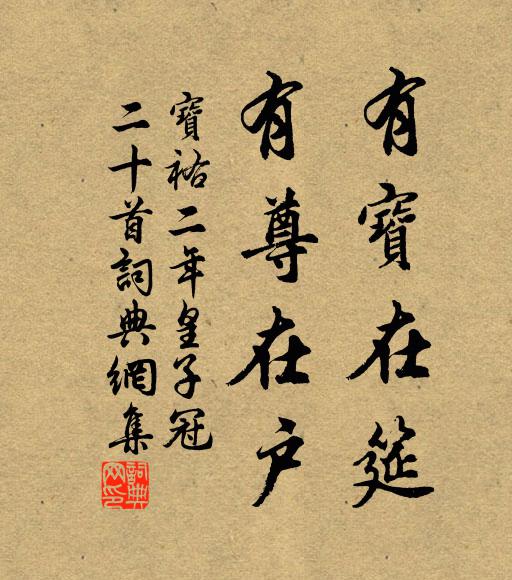 有寶在筵
有尊在戶
寶祐二年皇子冠
二十首詞典網集
詞典網印